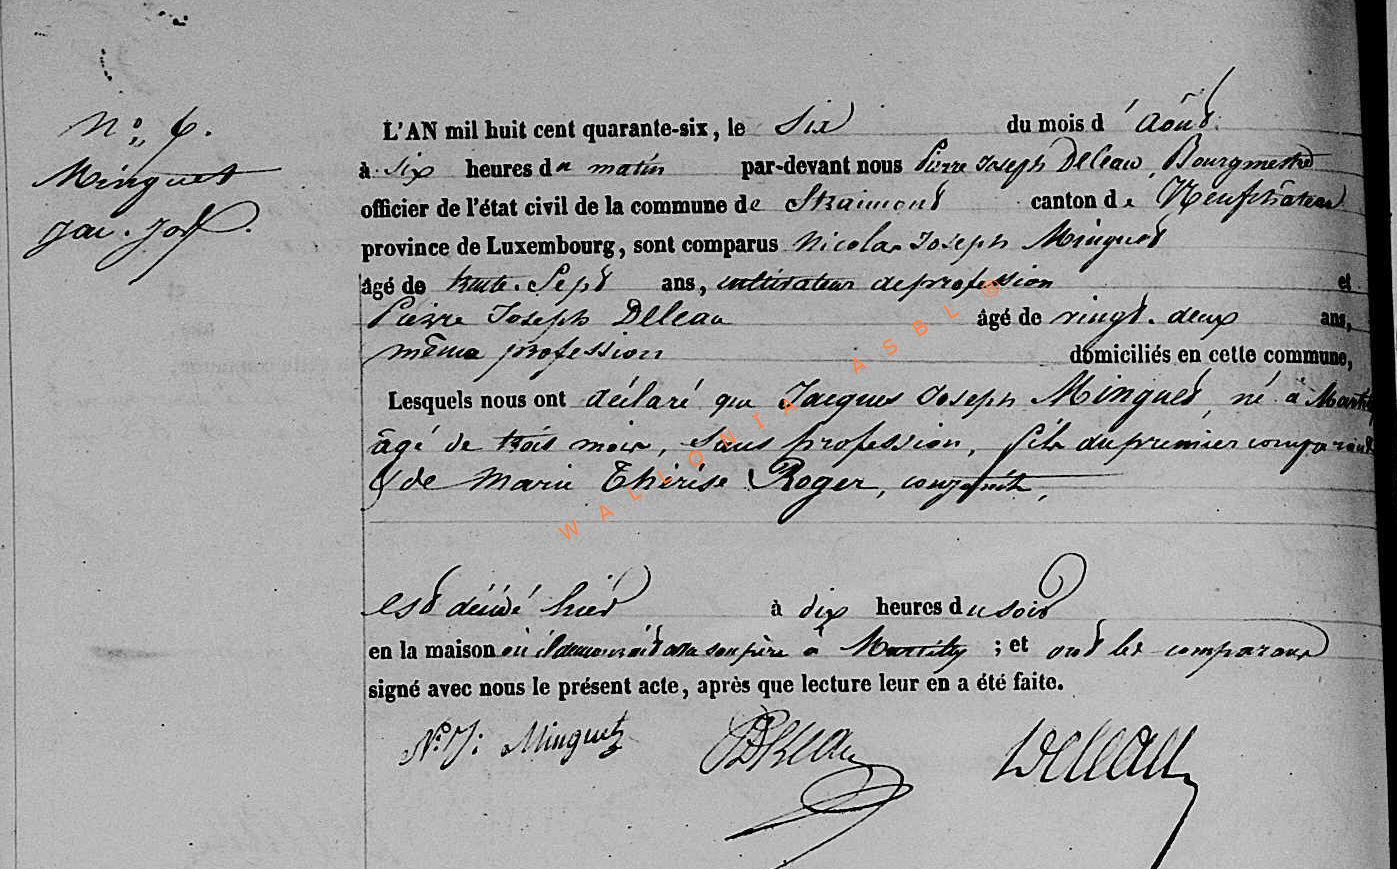 N:o 6.
Minguet
Jac. Jos.
L'AN mil huit cent quarante-six, le Six du mois d'Août
à Six heures du matin par-devant nous Pierre Joseph Deleau, Bourgmestre
officier de l'état civil de la commune de Straimont canton de Neufchâteau
province de Luxembourg, sont comparus Nicolas Joseph Minguet
âgé de trente-Sept ans, cultivateur de profession et
Pierre Joseph Deleau âgé de vingt-deux ans,
même profession domiciliés en cette commune,
Lesquels nous ont déclaré que Jacques Joseph Minguet, né à Martilly
âgé de trois mois, Sans profession, fils du premier comparant
& de Marie Thérèse Roger, conjoints,
est décédé hier à dix heures du soir
en la maison où il demeurait avec son père à Martilly ; et ont les comparans
signé avec nous le présent acte, après que lecture leur en a été faite.
N: J: Minguet Deleau Deleau
WALLONIA ASBL ©